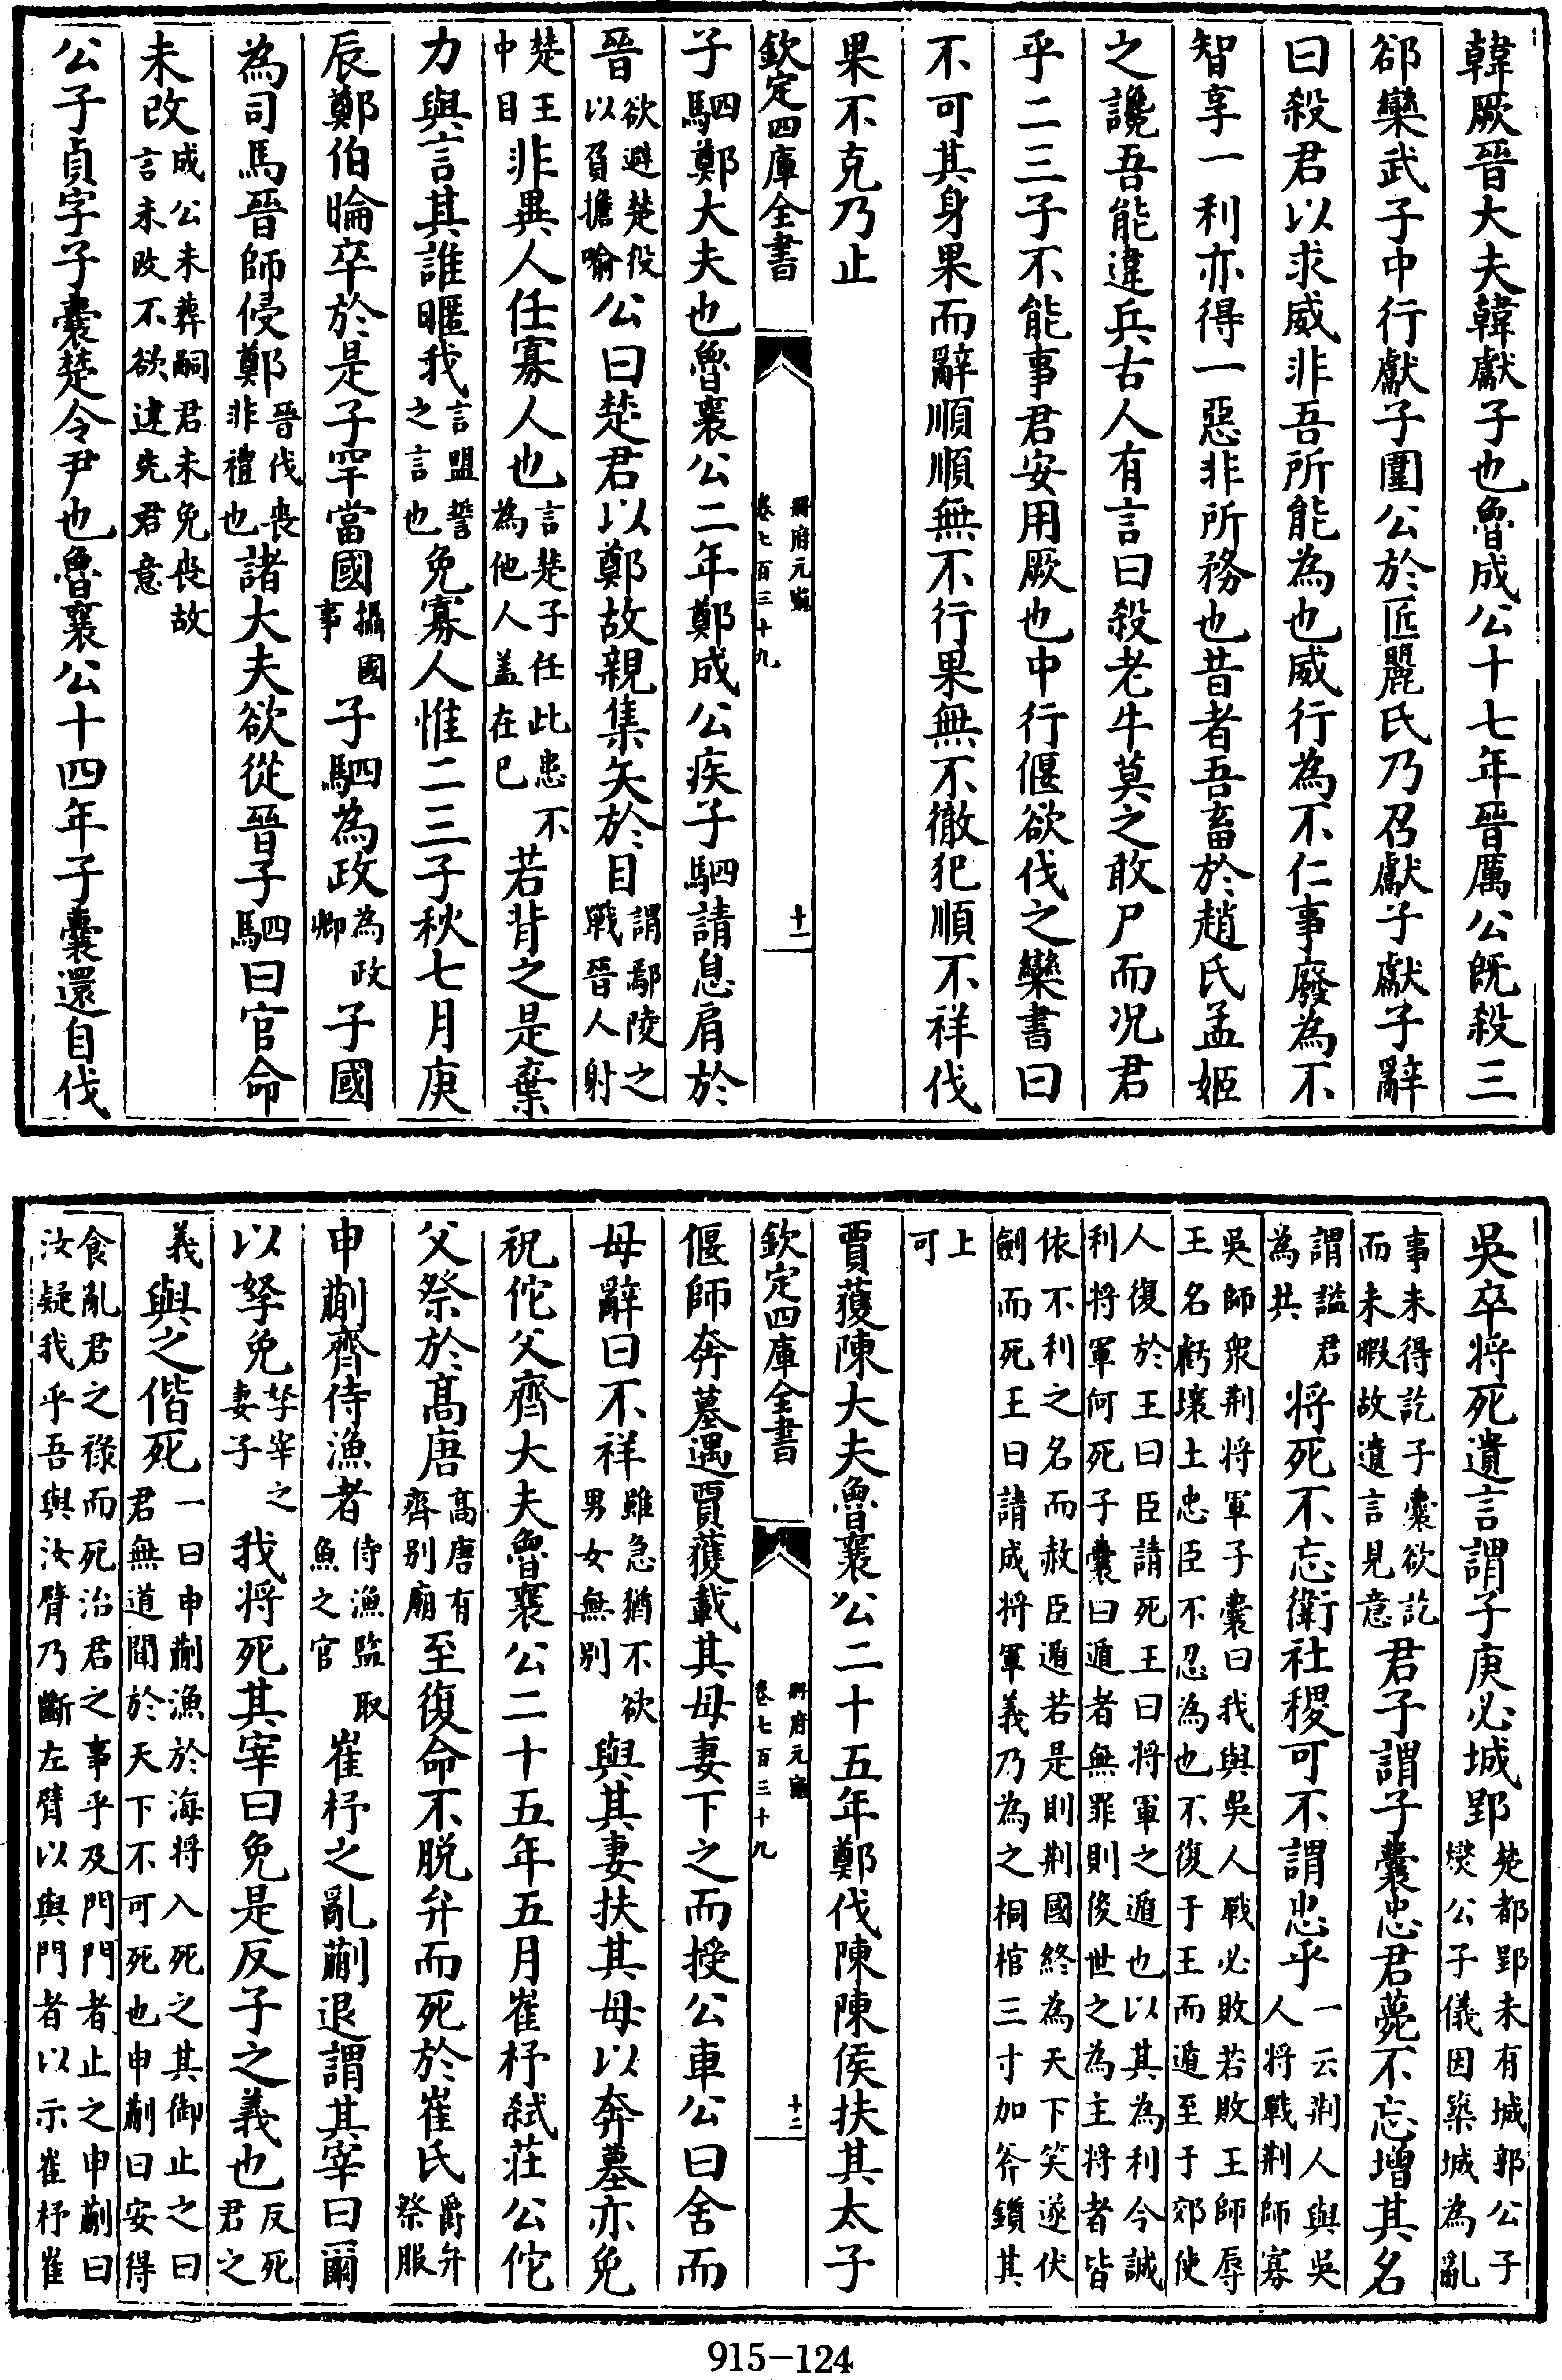 韓厥晉大夫韓獻子也魯成公十七年晉厲公既殺三
郤欒武子中行獻子圍公於匠麗氏乃召獻子獻子辭
曰殺君以求威非吾所能為也威行為不仁事廢為不
智享一利亦得一惡非所務也昔者吾畜於趙氏孟姬
之讒吾能違兵古人有言曰殺老牛莫之敢尸而况君
乎二三子不能事君安用厥也中行偃欲伐之欒書曰
不可其身果而辭順順無不行果無不徹犯順不祥伐
果不克乃止
欽定四庫全書 冊府元龜 卷七百三十九 十一
子駟鄭大夫也魯襄公二年鄭成公疾子駟請息肩於
晉欲避楚役以負擔喻公曰楚君以鄭故親集矢於目謂鄢陵之戰晉人射
楚王中目非異人任寡人也言楚子任此患不為他人盖在巳若背之是棄
力與言其誰暱我言盟誓之言也免寡人惟二三子秋七月庚
辰鄭伯睔卒於是子罕當國攝國事子駟為政為政卿子國
為司馬晉師侵鄭晉伐喪非禮也諸大夫欲從晉子駟曰官命
未改成公未葬嗣君未免喪故言未改不欲違先君意
公子貞字子囊楚令尹也魯襄公十四年子囊還自伐
吳卒將死遺言謂子庚必城郢楚都郢未有城郭公子爕公子儀因築城為亂
事未得訖子囊欲訖而未暇故遺言見意君子謂子囊忠君薨不忘增其名
謂謚君為共將死不忘衛社稷可不謂忠乎一云荆人與吳人將戰荆師寡
吳師衆荆將軍子囊曰我與吳人戰必敗若敗王師辱
王名虧壤土忠臣不忍為也不復于王而遁至于郊使
人復於王曰臣請死王曰將軍之遁也以其為利今誠
利將軍何死子囊曰遁者無罪則後世之為主將者皆
依不利之名而赦臣遁若是則荆國終為天下笑遂伏
劍而死王曰請成將軍義乃為之桐棺三寸加斧鑕其
上可
賈獲陳大夫魯襄公二十五年鄭伐陳陳侯扶其太子
欽定四庫全書 冊府元龜 卷七百三十九 十二
偃師奔墓遇賈獲載其母妻下之而授公車公曰舍而
母辭曰不祥雖急猶不欲男女無别與其妻扶其母以奔墓亦免
祝佗父齊大夫魯襄公二十五年五月崔杼弑莊公佗
父祭於高唐高唐有齊别廟至復命不脱弁而死於崔氏爵弁祭服
申蒯齊侍漁者侍漁監取魚之官崔杼之亂蒯退謂其宰曰爾
以孥免孥宰之妻子我將死其宰曰免是反子之義也反死君之
義與之偕死一曰申蒯漁於海將入死之其御止之曰君無道聞於天下不可死也申蒯曰安得
食亂君之祿而死治君之事乎及門門者止之申蒯曰
汝疑我乎吾與汝臂乃斷左臂以與門者以示崔杼崔
915-124